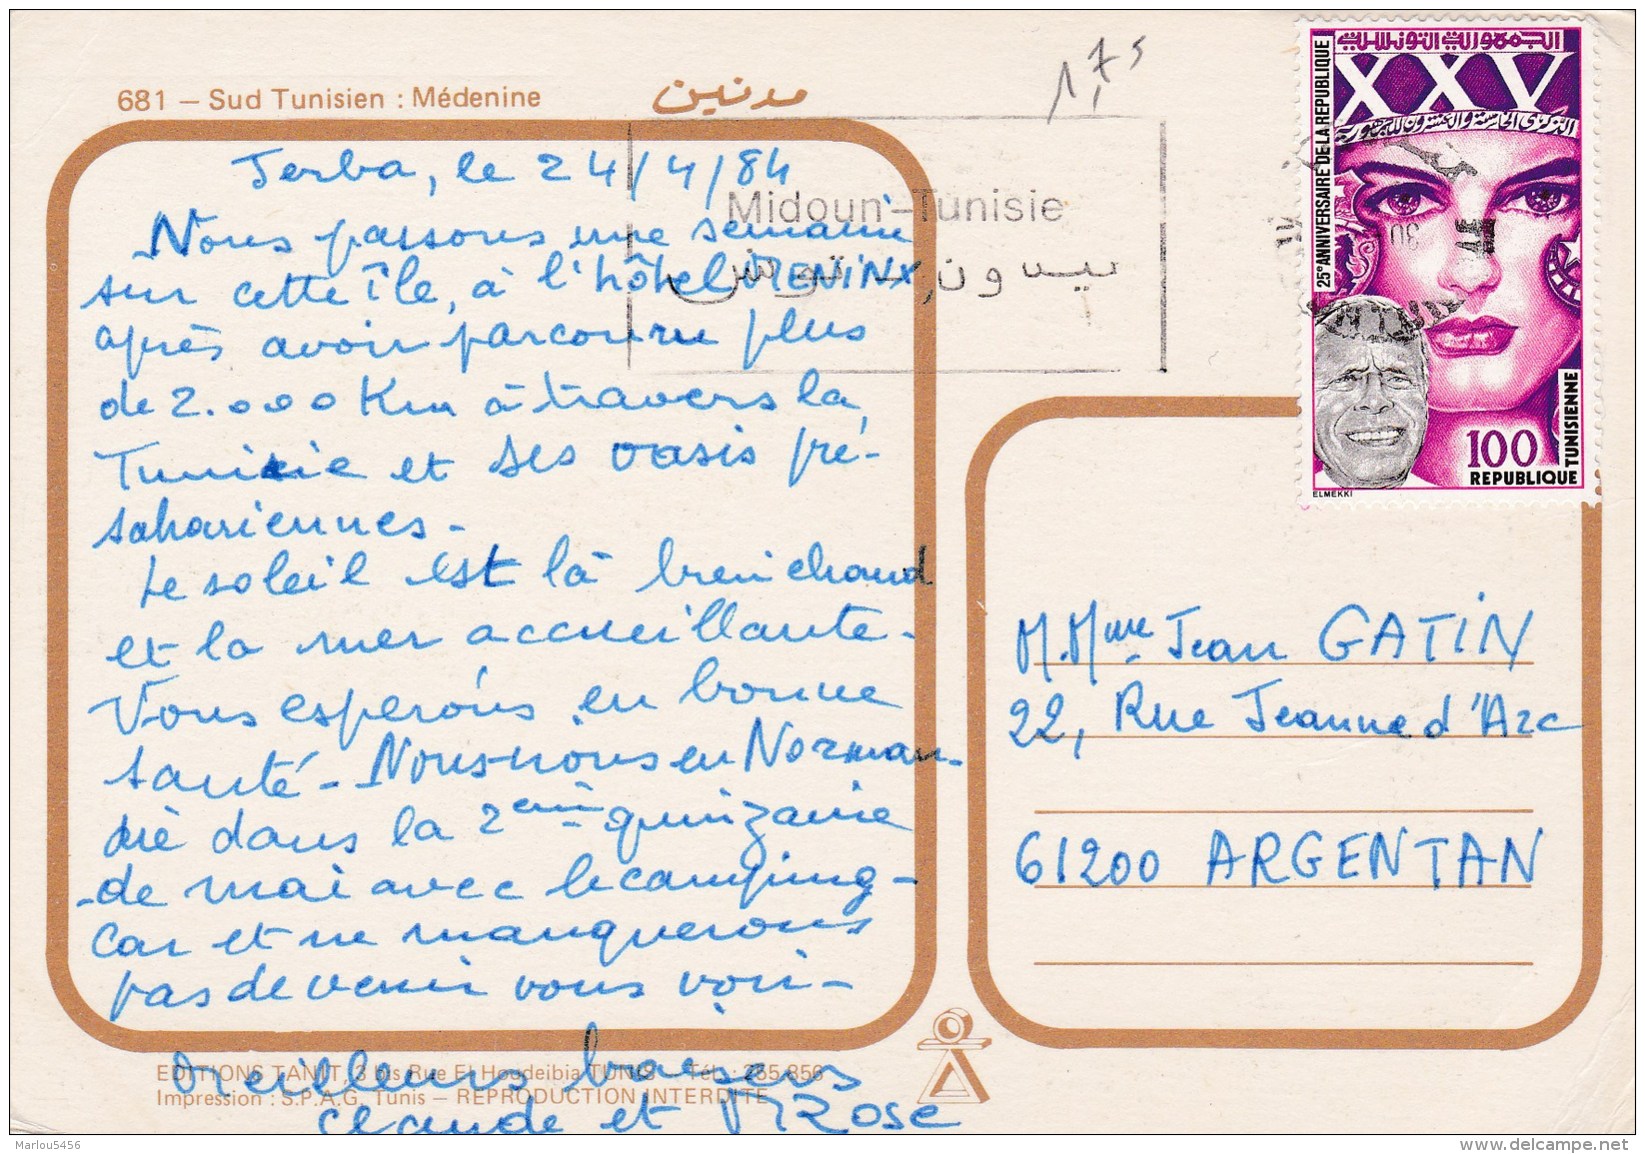 681 – Sud Tunisien : Médenine
مدنين
1,75
Jerba, le 24/4/84
Nous passons une semaine
sur cette île, à l'hôtel MENINX,
après avoir parcouru plus
de 2.000 Km à travers la
Tunisie et ses oasis pré-
sahariennes -
Le soleil est là bien chaud
et la mer accueillante -
Vous esperons en bonne
santé - Nous-nous en Norman-
die dans la 2ème quinzaine
de mai avec le camping-
car et ne manquerons
pas de venir vous voir -
Meilleurs baisers
Claude et MRose
EDITIONS TANIT, 3 bis Rue El Houdeibia TUNIS - Tél. : 255.856
Impression : S.P.A.G. Tunis – REPRODUCTION INTERDITE
Midoun-Tunisie
ميدون - تونس
الجمهورية التونسية
XXV
الذكرى الخامسة والعشرون للجمهورية
25e ANNIVERSAIRE DE LA REPUBLIQUE
100
REPUBLIQUE
TUNISIENNE
ELMEKKI
30
M.Mme Jean GATIN
22, Rue Jeanne d'Arc
61200 ARGENTAN
Marlou5456
www.delcampe.net